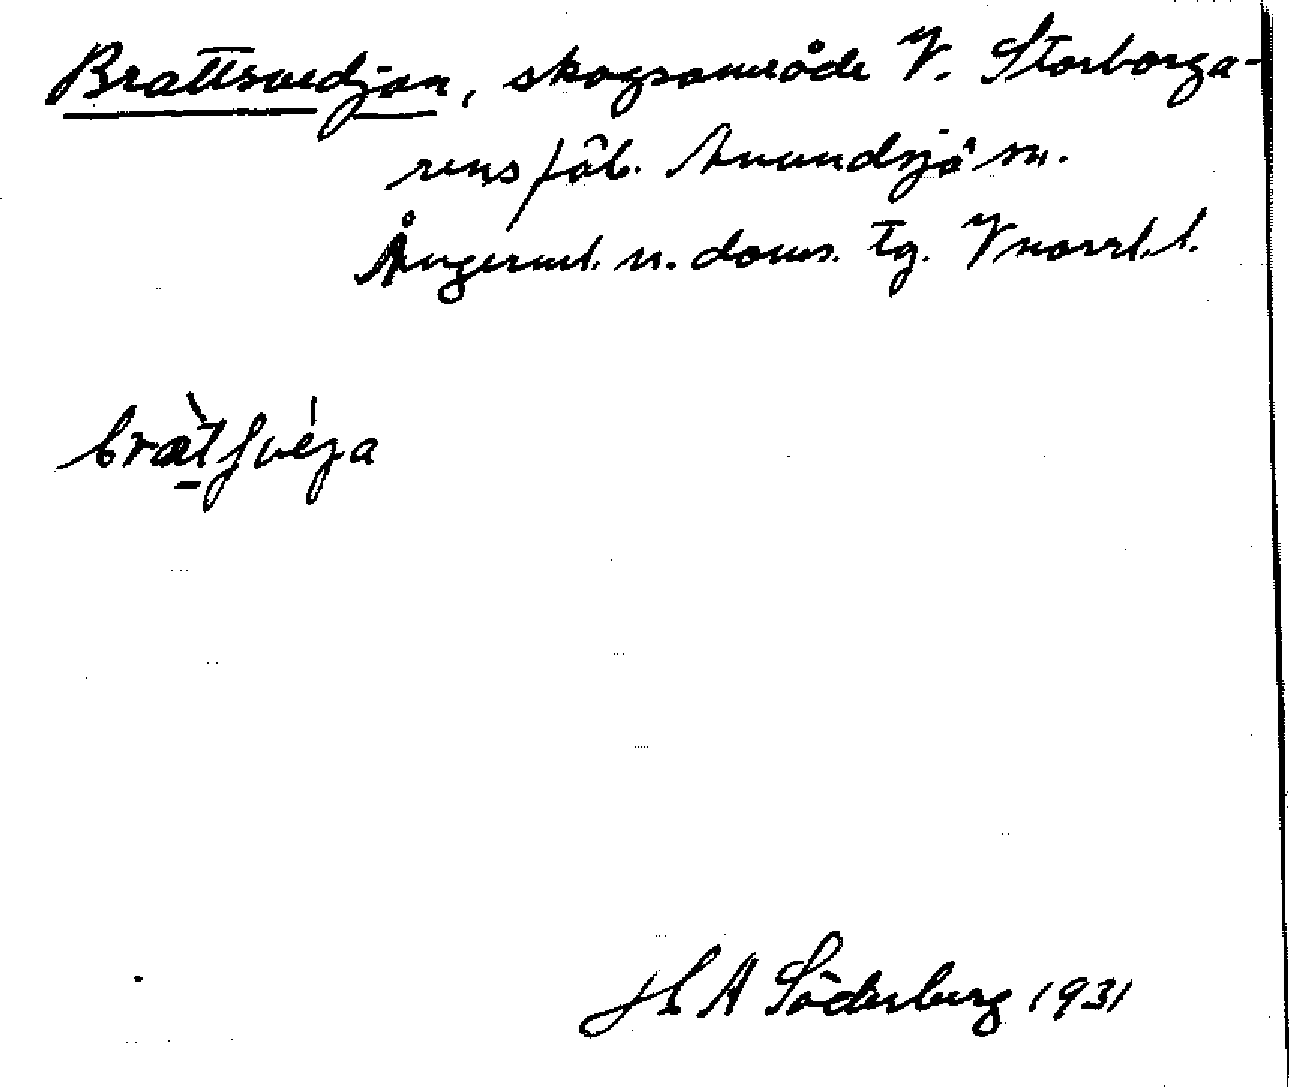 Brattsvedjan, skogsområde V. Storborga-
rens fäb. Anundsjö sn.
Ångerml. n. doms. tg. Vnorrl. l.
bràtʃvéja
H A Söderberg 1931